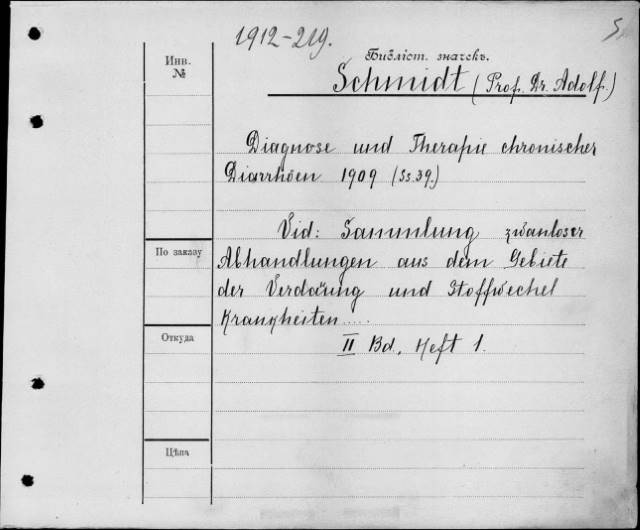 1912-219.
5
Библіот. значекъ.
Инв.
№
Schmidt (Prof. Dr. Adolf.)
Diagnose und Therapie chronischer
Diarrhöen 1909 (Ss. 39.)
Vid: Sammlung zwanloser
По заказу
Abhandlungen aus dem Gebiete
der Verdaüng und Stoffwechel
Krangheiten.....
Откуда
II Bd. Heft 1.
Цѣна